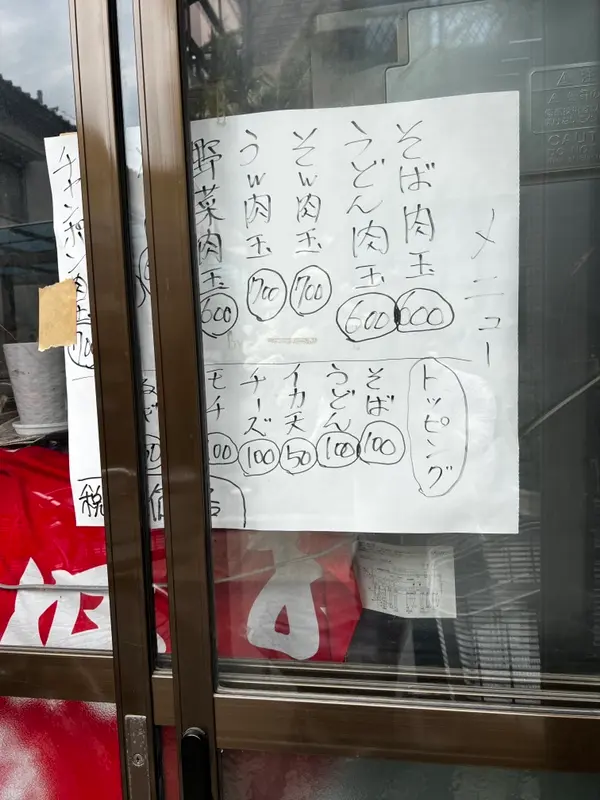 メニュー
そば肉玉 600
うどん肉玉 600
そW肉玉 700
うW肉玉 700
野菜肉玉 600
チャンポン肉玉
トッピング
そば 100
うどん 100
イカ天 50
チーズ 100
モチ
税
CAUT